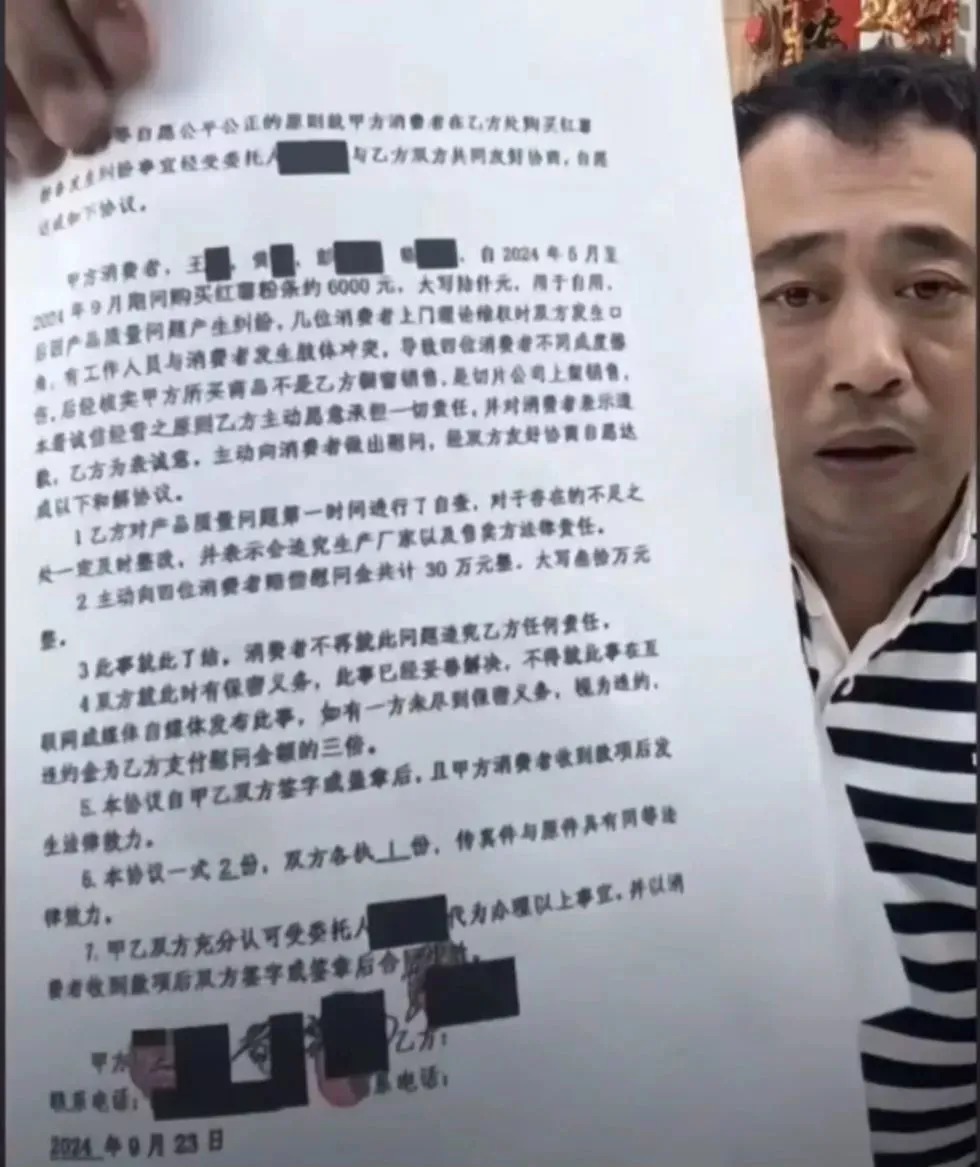 等自愿公平公正的原则就甲方消费者在乙方处购买红薯
粉条发生纠纷事宜经受委托人 与乙方双方共同友好协商，自愿
达成如下协议。
甲方消费者，王 ，黄 ，彭 ， ，自2024年5月至
2024年9月期间购买红薯粉条约6000元，大写陆仟元，用于自用，
后因产品质量问题产生纠纷，几位消费者上门理论维权时双方发生口
角，有工作人员与消费者发生肢体冲突，导致四位消费者不同成度伤
害，后经核实甲方所买商品不是乙方橱窗销售，是切片公司上架销售，
本着诚信经营之原则乙方主动愿意承担一切责任，并对消费者表示道
歉，乙方为表诚意，主动向消费者做出慰问，经双方友好协商自愿达
成以下和解协议。
1乙方对产品质量问题第一时间进行了自查，对于存在的不足之
处一定及时整改，并表示会追究生产厂家以及售卖方法律责任。
2主动向四位消费者赔偿慰问金共计30万元整，大写叁拾万元
整。
3此事就此了结，消费者不再就此问题追究乙方任何责任，
4双方就此时有保密义务，此事已经妥善解决，不得就此事在互
联网或媒体自媒体发布此事，如有一方未尽到保密义务，视为违约，
违约金为乙方支付慰问金额的三倍。
5.本协议自甲乙双方签字或盖章后，且甲方消费者收到款项后发
生法律效力。
6.本协议一式2份，双方各执1份，传真件与原件具有同等法
律效力。
7.甲乙双方充分认可受委托人 代为办理以上事宜，并以消
费者收到款项后双方签字或签章后合同
甲方 乙方：
联系电话： 系电话：
2024年9月23日